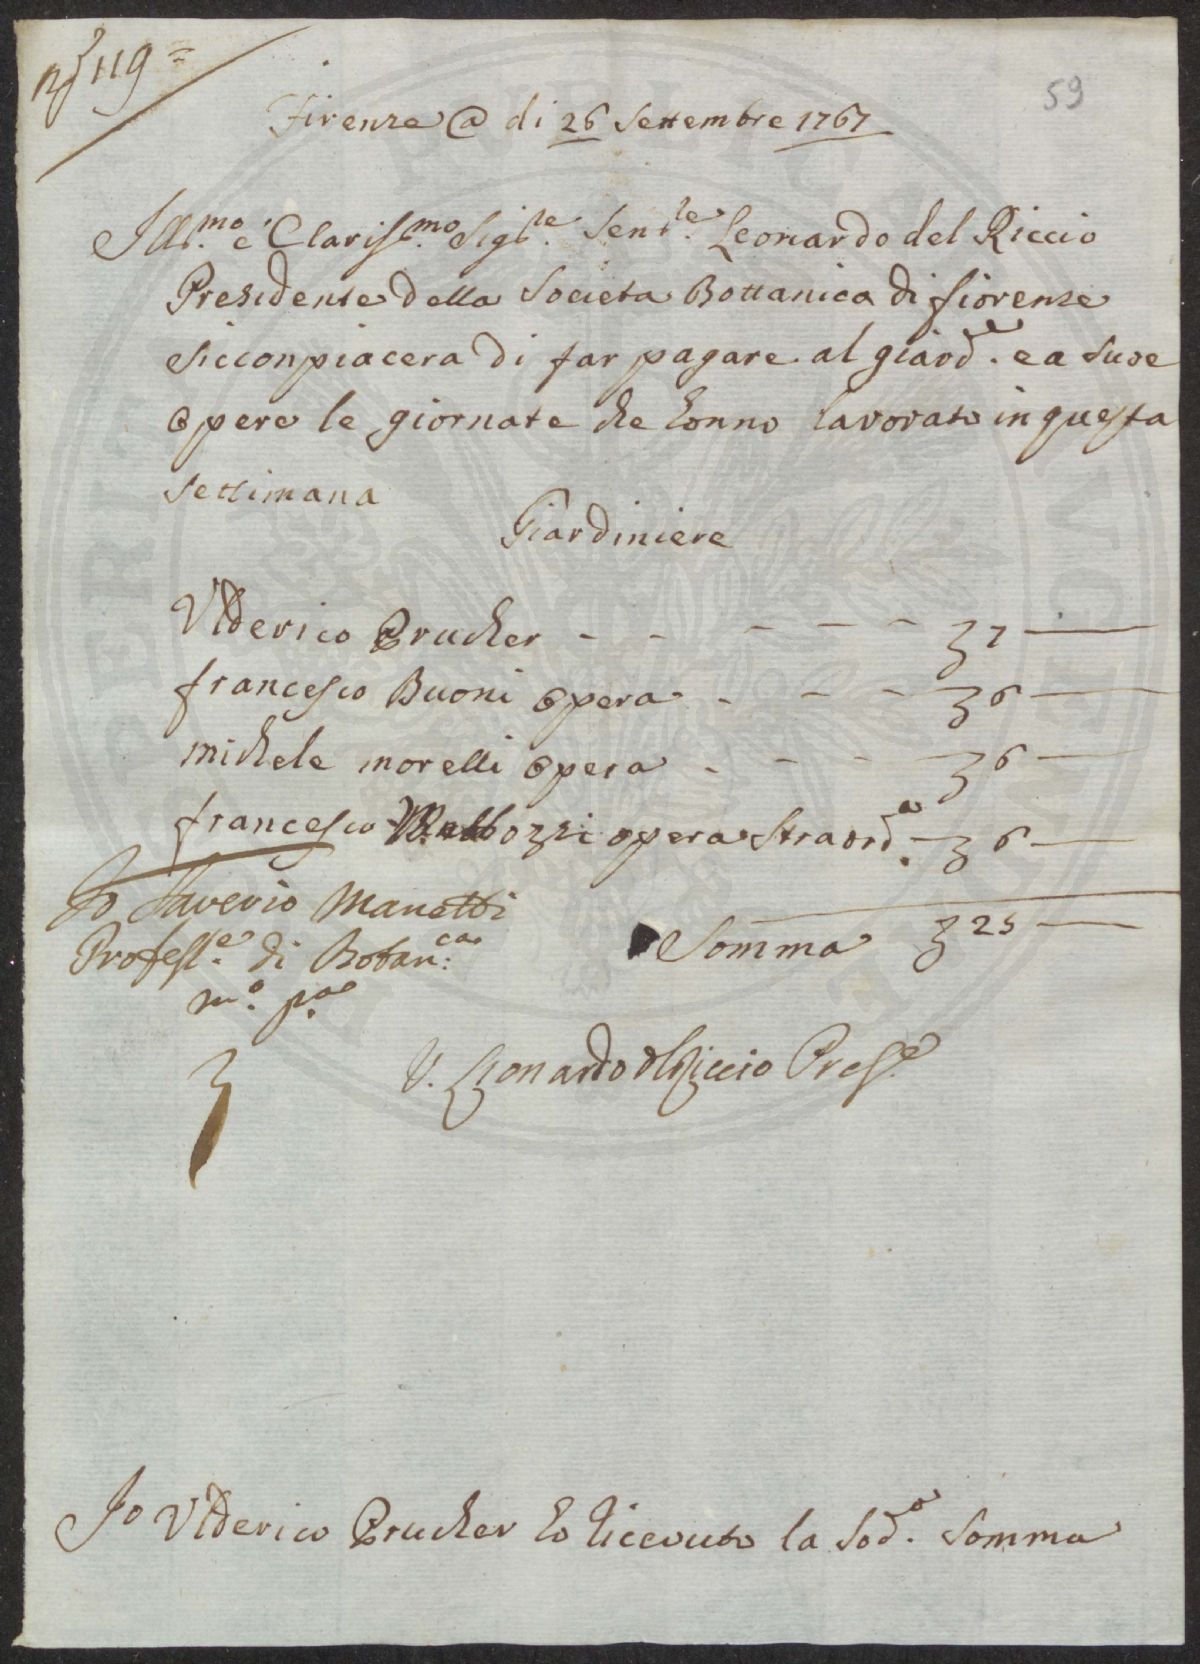 No 119 =
59
Firenze @ di 26 Settembre 1767
Ill:mo e Claris:mo Sig:re Sen:re Leonardo del Riccio
Presidente della Societa Bottanica di fiorenze
siconpiacera di far pagare al giard.e e a sue
opere le giornate che hanno lavorato in questa
settimana
Giardiniere
Ulderico Prucker - - - - - 7 —
francesco Buoni opera - - - 6 —
michele morelli opera - - - 6 —
francesco opera Straord.a - 6 —
Io Saverio Manetti
Profess.e di Botan:ca
m.o p.o
Somma 25 —
V. Leonardo del Riccio Pres.e
Io Ulderico Prucker ho riceuto la Sod.a Somma